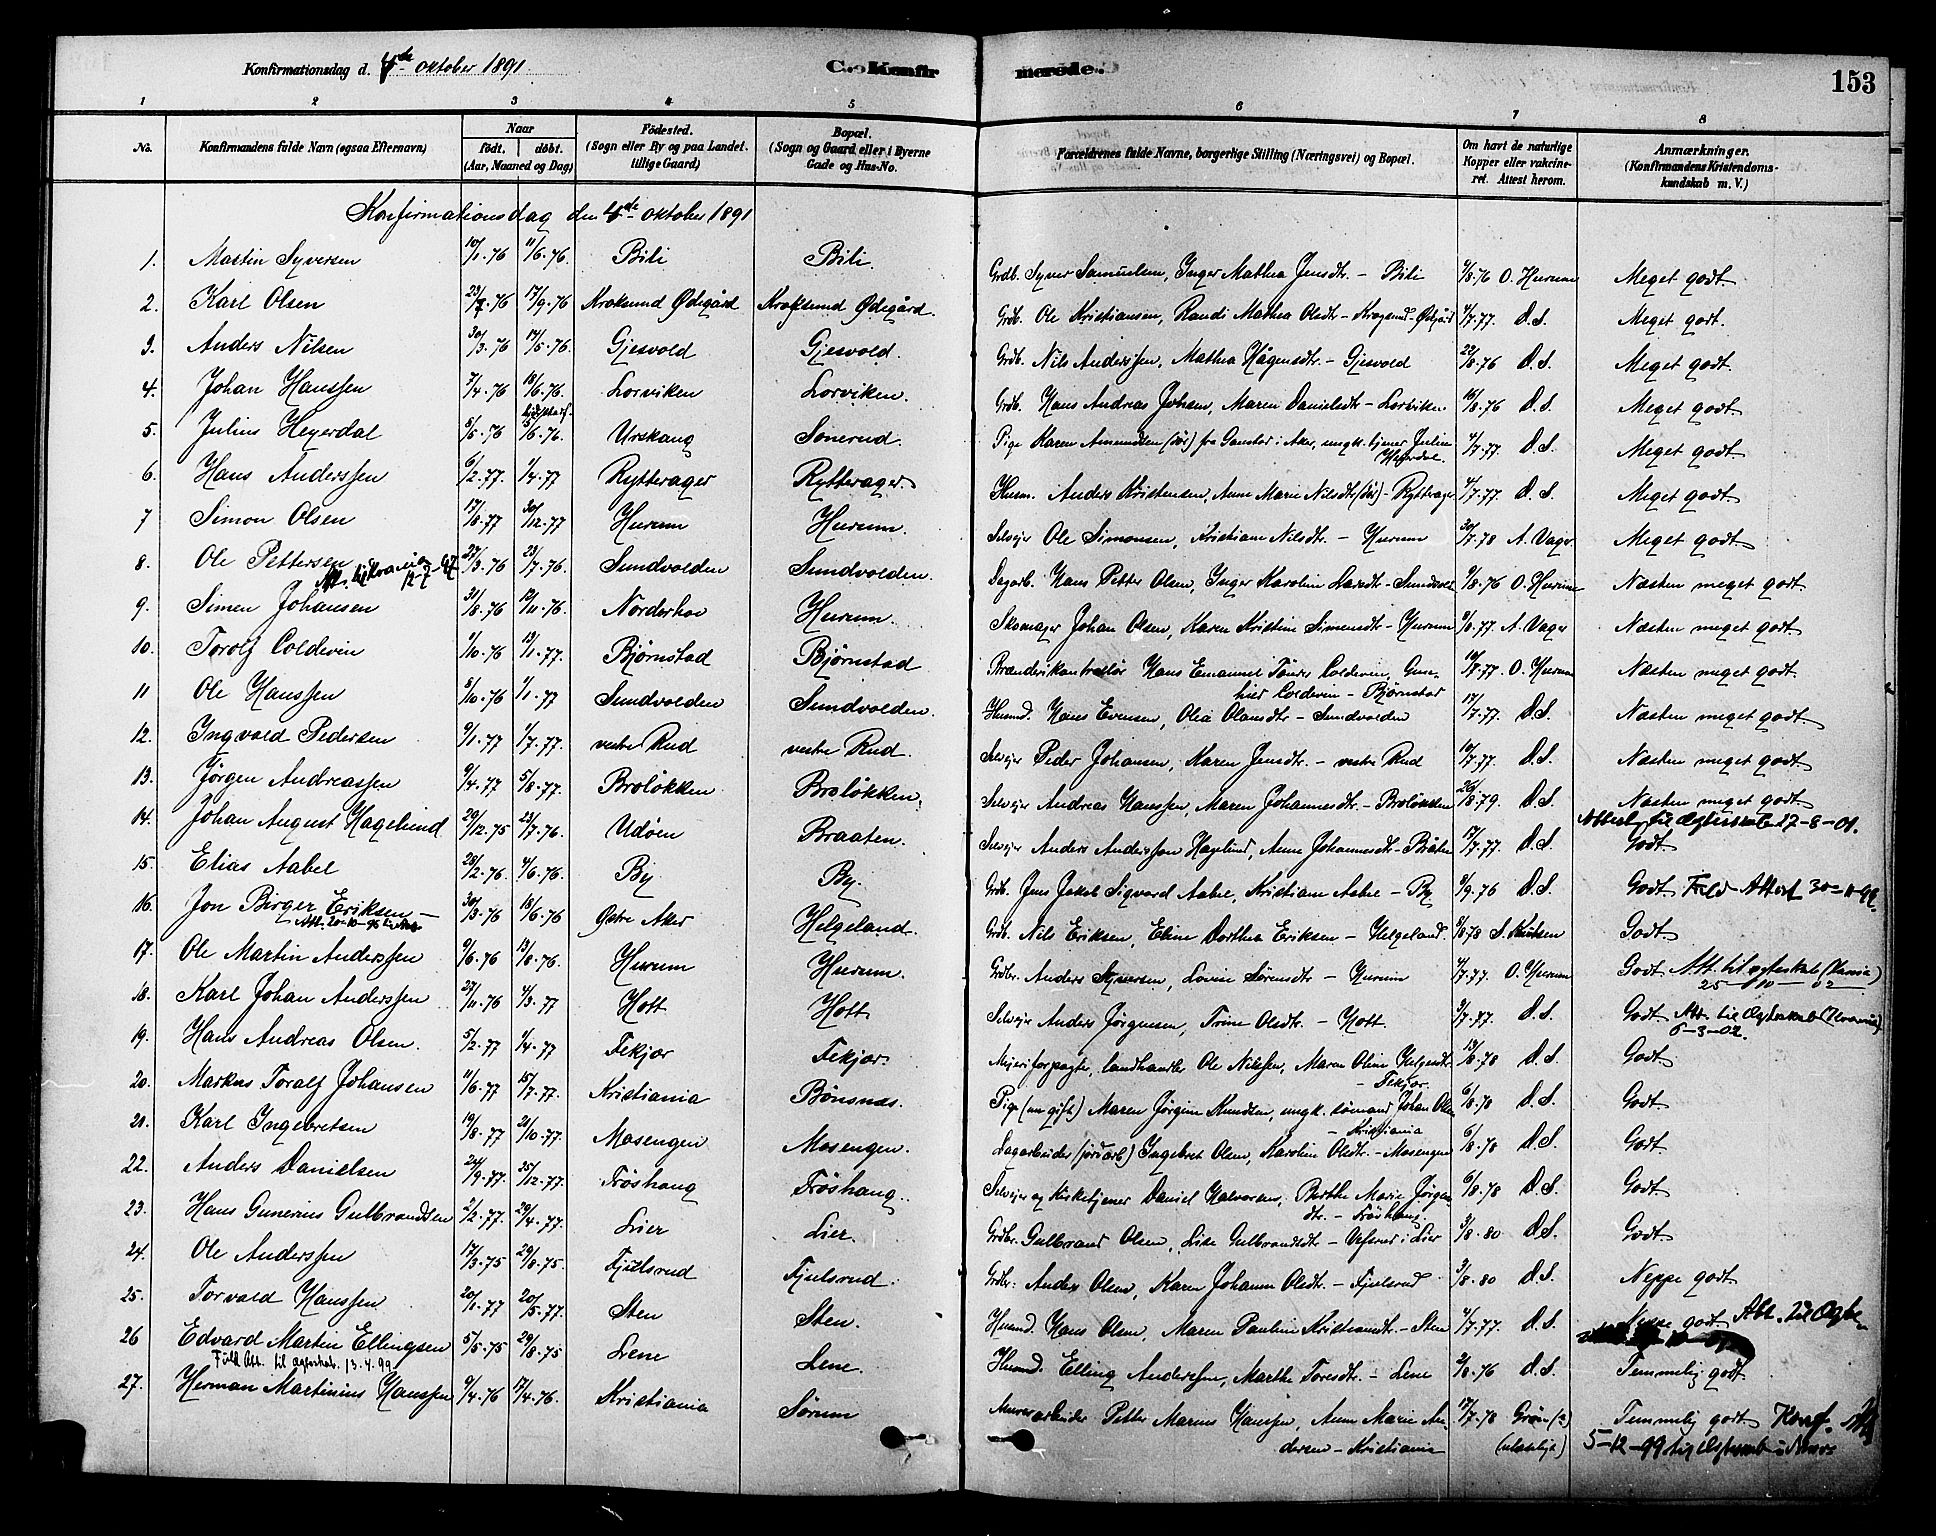 Konfirmationsdag d. 4de oktober 1891. C. Konfir merede. 153
1 2 3 4 5 6 7 8
No. Konfirmandens fulde Navn (ogsaa Efternavn) Naar født, døbt. (Aar, Maaned og Dag) Födested. (Sogn eller By og paa Landet tillige Gaard) Bopæl. (Sogn og Gaard eller i Byerne Gade og Hus-No. Forældrenes fulde Navne, borgerlige Stilling (Næringsvei) og Bopæl. Om havt de naturlige Kopper eller vakcineret. Attest herom. Anmærkninger. (Konfirmandens Kristendomskundskab m. V.)
Konfirmationsdag den 4de oktober 1891
1. Martin Syversen 10/1.76 11/6.76. Bili Bili. Grdb. Syver Samuelsen, Inger Mathea Jensdtr. - Bili 9/8.76 O. Hurum Meget godt.
2. Karl Olsen 23/7.76 17/9.76 Kroksund Ødegård Kroksund Ødegård. Grdb. Ole Kristiansen, Randi Mathea Olsdtr - Krogsund-Ødegård 4/7.77. D.S. Meget godt.
3. Anders Nilsen 30/3.76 14/5.76. Gjesvold Gjesvold. Grdb. Nils Anderssen, Mathea Hågensdtr. - Gjesvold 22/8.76 D.S. Meget godt.
4. Johan Hanssen 7/4.76 18/6.76. Lorviken Lorviken. Grdb. Hans Andreas Johsen, Maren Danielsdtr - Lorviken 16/8.76 D.S. Meget godt.
5. Julius Heyerdal 5/5.76 5/6.76. Urskaug Sonerud. Pige Karen Amundsen (død) fra Aker, ungk. tjener Julius Heyerdal. 4/7.77. D.S. Meget godt.
6. Hans Anderssen 6/2.77. 1/4.77 Rytterager Rytterager. Husm. Anders Kristensen, Anne Marie Nilsdtr (død) - Rytterager 4/7.77. D.S. Meget godt.
7 Simon Olsen 17/8.77 30/12.77 Hurum Hurum. Selvejer Ole Simonsen, Kristiane Nilsdtr - Hurum 30/7.78 A. Vager Meget godt.
8. Ole Pettersen 27/3.76 23/7.76. Sundvolden Sundvolden. Sagarb. Hans Petter Olsen, Inger Karoline Larsdtr - Sundvolden 9/8.76 O. Hurum Næsten meget godt.
12-7-97
9. Simen Johansen 31/8.76 12/11.76. Norderhov Hurum. Skomager Johan Olsen, Karen Kristine Simensdtr - Hurum 8/6.77. A. Vager Næsten meget godt.
10. Torolf Coldevin 1/10.76 13/1.77. Bjørnstad Bjørnstad Brænderikontrollør Hans Emanuel Coldevin, Gunhild Coldevin - Bjørnstad 10/7.77 O. Hurum Næsten meget godt.
11 Ole Hanssen 8/10.76 1/1.77 Sundvolden Sundvolden. Husmd. Hans Evensen, Olea Olausdtr - Sundvolden 17/7.77. D.S. Næsten meget godt.
12. Ingvald Pedersen 9/1.77 1/7.77. vestre Rud vestre Rud. Selvejer Peder Johansen, Karen Jensdtr. - vestre Rud 10/7.77. D.S. Næsten meget godt.
13. Jørgen Andreassen 9/4.77 5/8.77. Broløkken Broløkken. Selvejer Andreas Hanssen, Maren Johannesdtr - Broløkken 26/8.79. D.S. Næsten meget godt.
14. Johan August Hagelund 29/12.75 23/7.76. Udøen Braaten. Selvejer Anders Anderssen Hagelund, Anne Johannesdtr - Bråten 17/7.77. D.S. Attest til Ægteskab 27-8-01. Godt.
15. Elias Aabel 28/2.76. 4/6.76. By By. Grdb. Jens Jakob Sigvard Aabel, Kristiane Aabel - By 8/9.76 D.S. Godt. Fuld Attest 30-11-99.
16. Jon Birger Eriksen - 30/3.76 18/6.76 Østre Aker Helgeland. Grdb. Nils Eriksen, Eline Dorthea Eriksen - Helgeland. 8/8.78 S. Knutsen Godt
Att. 20-10-96
17. Ole Martin Anderssen 9/6.76 13/8.76. Hurum Hurum. Grdbr. Anders Syversen, Lovise Sørensdtr - Hurum 4/7.77. O. Hurum Godt. Att. til ægteskab 25-10-02
18. Karl Johan Anderssen 27/11.76 4/3.77 Hott Hott Selvejer Anders Jørgensen, Trine Olsdtr. - Hott. 3/7.77. D.S. Godt Att. til Ægteskab 6-3-02.
19. Hans Andreas Olsen. 5/2.77 1/4.77 Fekjær Fekjær. Mejeriforpagter, landhandler Ole Nilssen, Maren Oline Helgesdtr. - Fekjær. 13/8.78 D.S. Godt
20. Markus Toralf Johansen 11/6.77 15/7.77. Kristiania Bønsnæs. Pige (nu gift) Maren Jørgine Knudsen, ungk. sømand Johan Olsen - Kristiania 6/8.78 D.S. Godt.
21. Karl Ingebretsen 19/8.77 21/10.77. Mosengen Mosengen. Lagarbeider (jordarb.) Ingebret Olsen, Karoline Olsdtr. - Mosengen 6/8.78 D.S. Godt
22. Anders Danielsen 24/9.77. 25/12.77. Frøshaug Frøshaug. Selvejer og Kirketjener Daniel Halvorsen, Berthe Marie Jørgensdtr. - Frøshaug. 6/8.78 D.S. Godt
23. Hans Gunerius Gulbrandsen 2/2.77. 29/4.77. Lier Lier. Grdbr. Gulbrand Olsen, Lise Gulbrandsdtr - Vefsrud i Lier 3/8.80 D.S. Godt
24. Ole Anderssen 17/3.75 29/8.75. Fjulsrud Fjulsrud. Grdbr. Anders Olsen, Karen Johanne Olsdtr. - Fjulsrud 3/8.80 D.S. Neppe godt
25. Torvald Hanssen 20/1.77 20/5.77. Sten Sten. Husmd. Hans Olsen, Maren Pauline Kristiansdtr. - Sten 4/7.77. D.S. Neppe godt Att. til Ægte-
26 Edvard Martin Ellingsen 5/5.75 29/8.75 Lene Lene. Husmd. Elling Anderssen, Marthe Toresdtr. - Lene 2/8.76 D.S. Temmelig godt.
Fuld Att. til ægteskab. 13.4.99
27. Herman Martinius Hanssen 9/4.76 17/4.76. Kristiania Sørum Murerarbeider Petter Marius Hanssen, Anne Marie Andersen - Kristiania 17/7.78 Grøn (?) Temmelig godt Konf. Att.
5-12-99